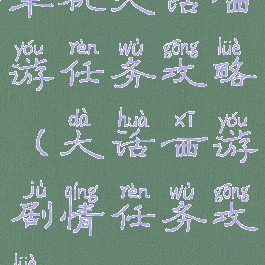 单机大话西
yóu rèn wù gōng lüè
游任务攻略
dà huà xī yóu
(大话西游
jù qíng rèn wù gōng
剧情任务攻
lüè